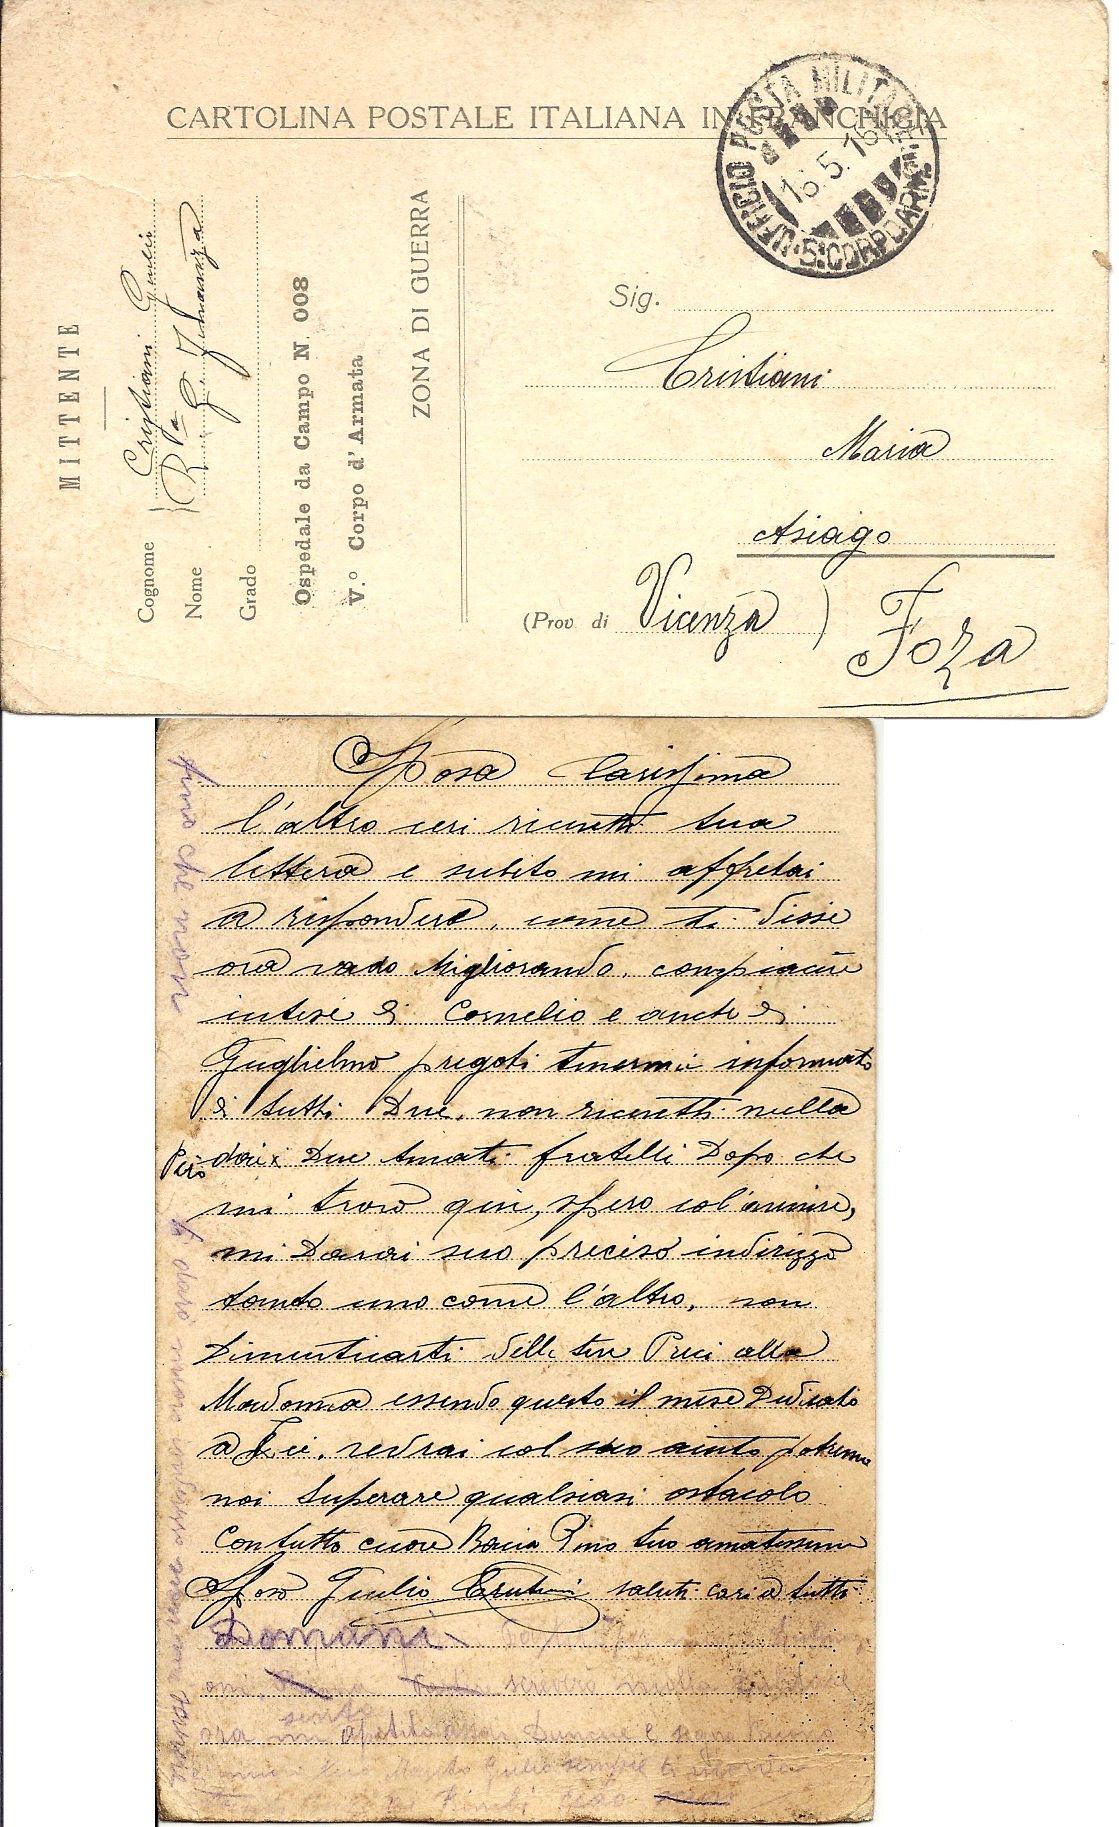 CARTOLINA POSTALE ITALIANA IN FRANCHIGIA
UFFICIO POSTA MILITARE
5° CORPO D'ARM.
16.5.16
MITTENTE
Cognome Cristiani Giulio
Nome R.va G. Finanza
Grado
Ospedale da Campo N. 008
V.° Corpo d'Armata
ZONA DI GUERRA
Sig.
Cristiani
Maria
Asiago
(Prov. di Vicenza)
Foza
Sposa Carissima
l'altro ieri ricevetti tua
lettera e subito mi affretai
a rispondere, come ti dissi
ora vado Migliorando, con piacere
intesi di Cornelio e anche di
Guglielmo pregoti tenermi informato
di tutti Due, non ricevetti nulla
Però dai Due Amati fratelli Dopo che
mi trovo qui, spero col'avenire,
mi Darai suo preciso indirizzo
tanto uno come l'altro, non
Dimenticarti delle tue Preci alla
Madonna essendo questo il mese Dedicato
a Lei, vedrai col suo aiuto potremo
noi Superare qualsiasi ostacolo
Con tutto cuore Bacia Pino tuo amatissimo
Sposo Giulio Cristiani saluti cari a tutti
Domani
scriverò
sento
ora mi apetito assai Dunque è segno Buono
tuo Giulio sempre ti ricorda
Ciao
fino che non
ti darò nuovo indirizzo